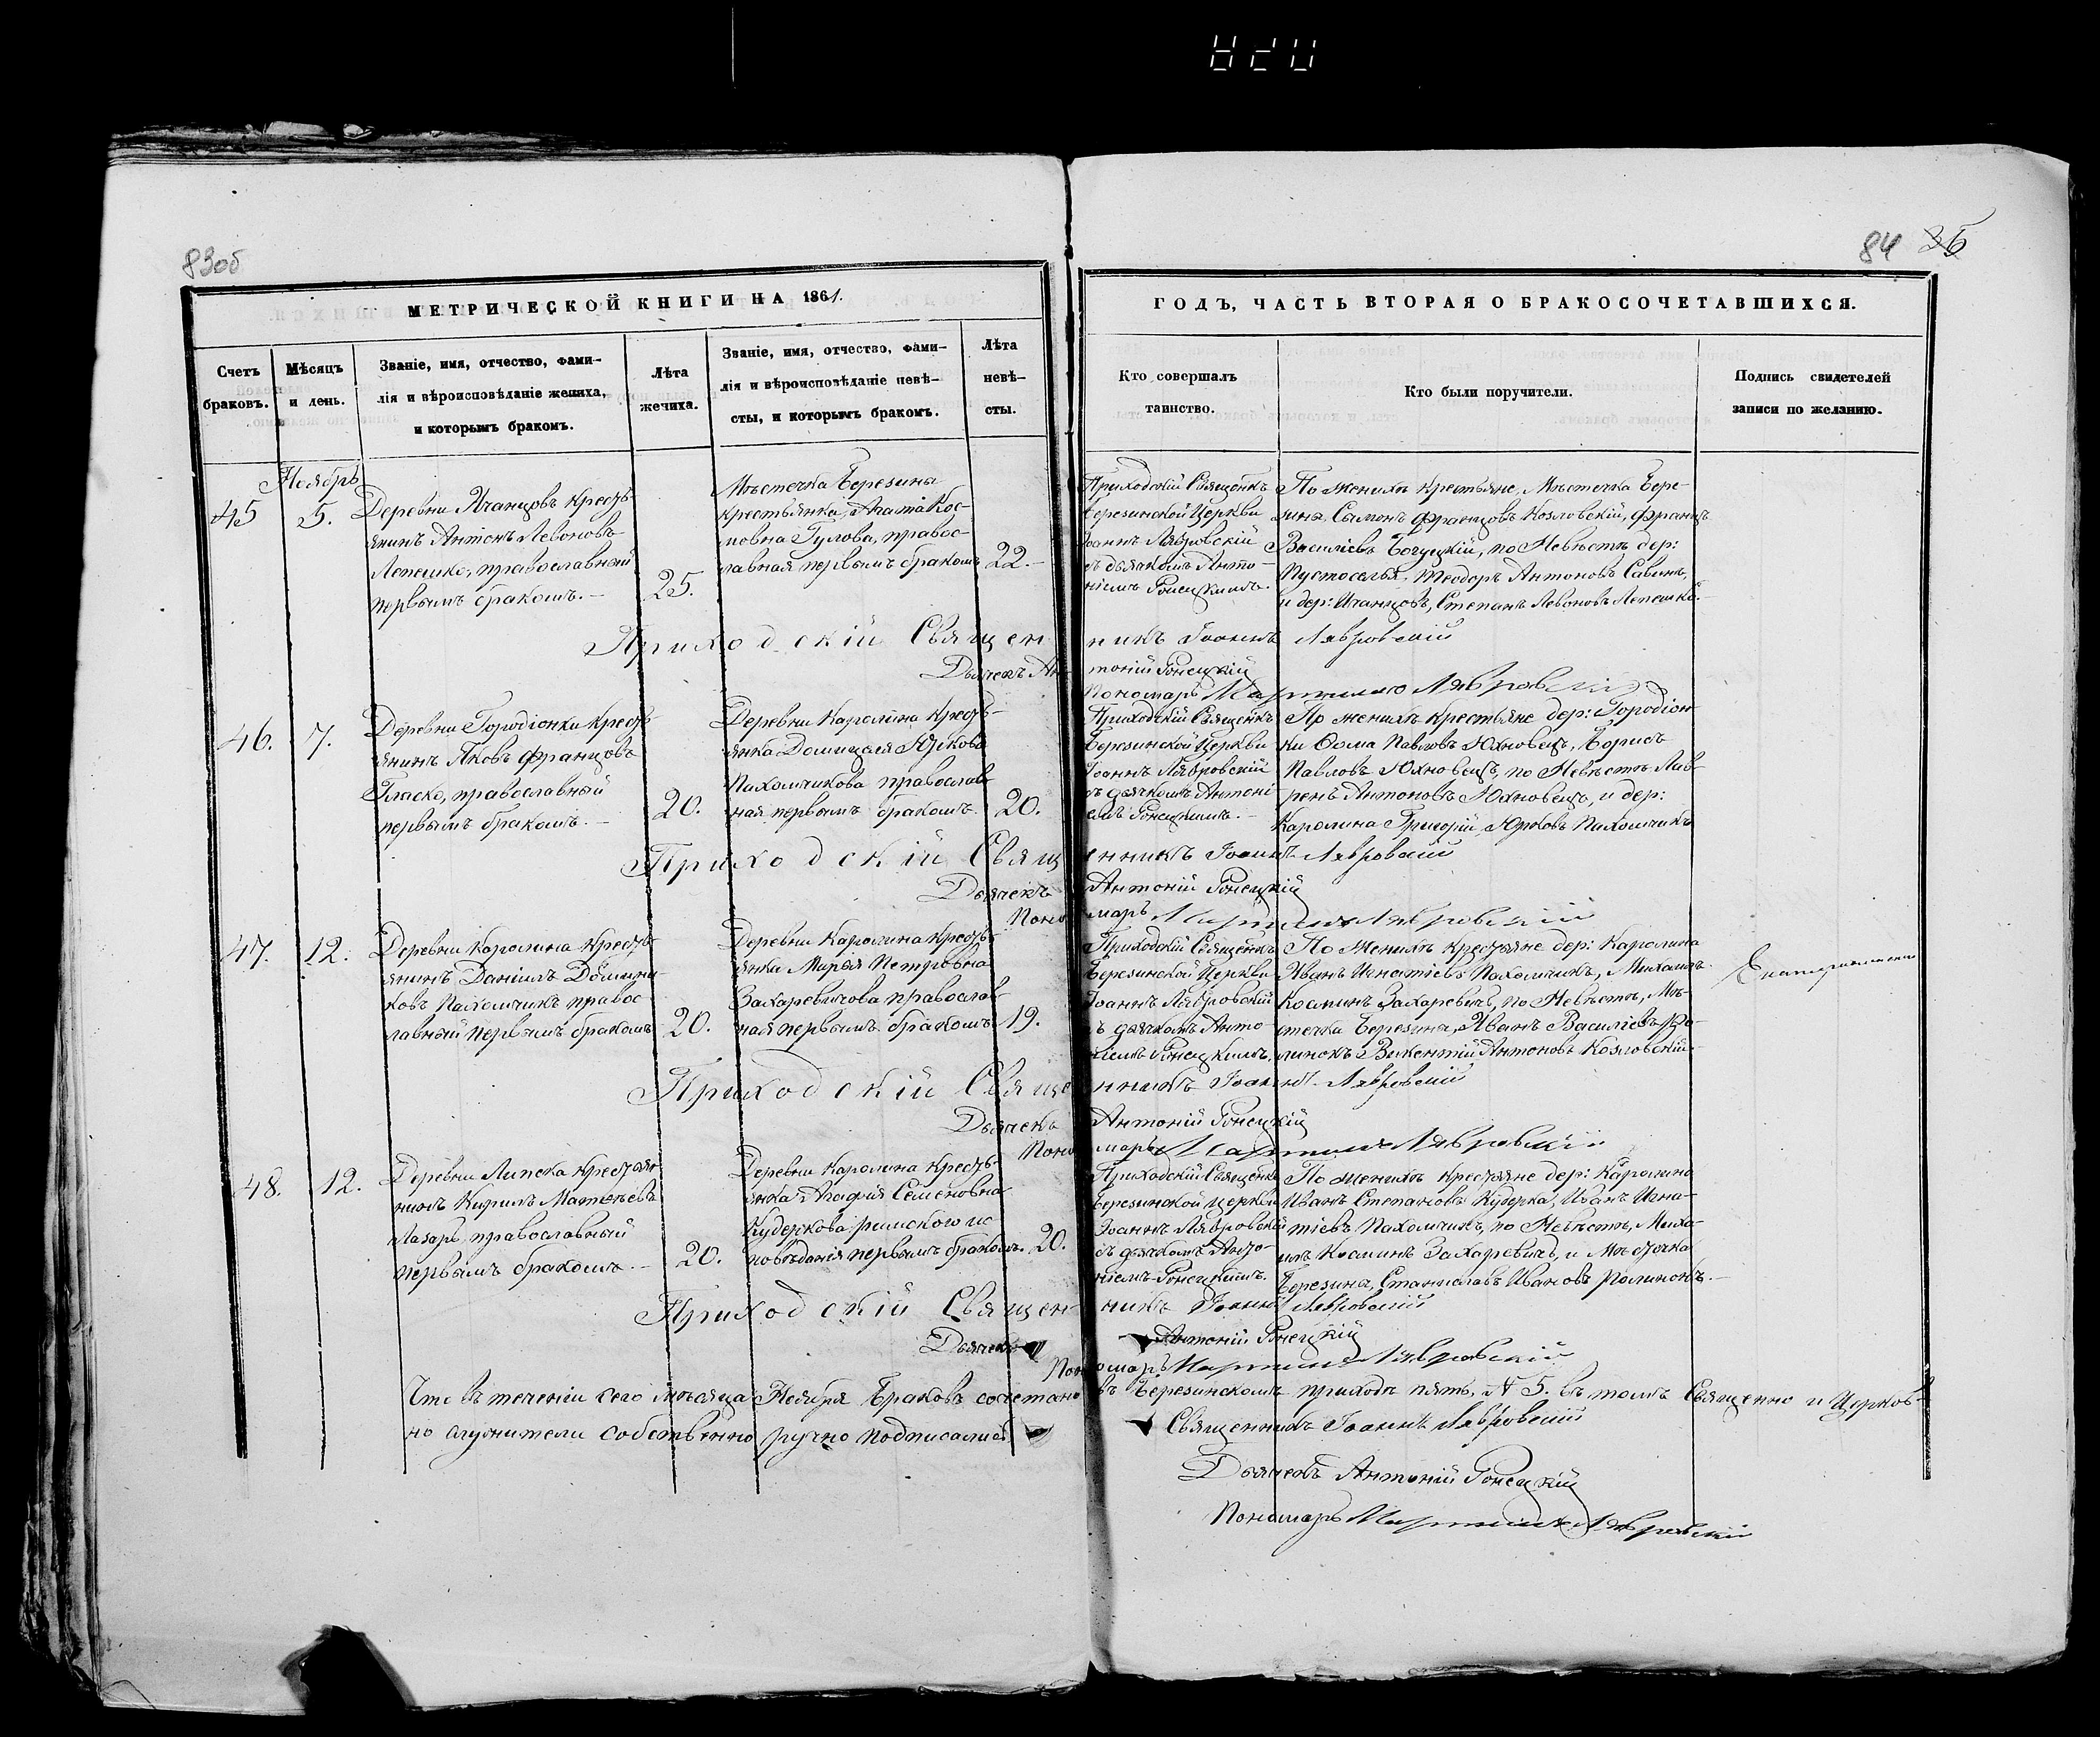 83об
84 36
МЕТРИЧЕСКОЙ КНИГИ НА 1861.
ГОДЪ, ЧАСТЬ ВТОРАЯ О БРАКОСОЧЕТАВШИХСЯ.
Счетъ
браковъ.
Мѣсяцъ
и день.
Званіе, имя, отчество, фами-
лія и вѣроисповѣданіе жениха,
и которымъ бракомъ.
Лѣта
жениха.
Званіе, имя, отчество, фами-
лія и вѣроисповѣданіе невѣ-
сты, и которымъ бракомъ.
Лѣта
невѣ-
сты.
Кто совершалъ
таинство.
Кто были поручители.
Подпись свидетелей
записи по желанію.
Ноябрь
45
5.
Деревни Ячанцовъ Кресть-
янинъ Антонъ Левоновъ
Лепешко, православный
первымъ бракомъ.
25.
Мѣстечка Березины
крестьянка, Агата Кос-
мовна Гулова, правос-
лавная первымъ бракомъ
22.
Приходскій Священикъ
Березинской Церкви
Іоаннъ Лявровскій
съ дьячкомъ Анто-
ніемъ Гонецкимъ.
По женихѣ крестьяне, Мѣстечка Бере-
зина, Самонъ Францовъ Козловскій, Францъ
Василіевъ Богуцкій, по Невѣстѣ дер:
Пустоселья, Теодоръ Антоновъ Савинъ,
и дер: Ичанцовъ, Степанъ Левоновъ Лепешко.
Приходскій Священникъ Іоаннъ Лявровскій
Дьячекъ Антоній Гонецкій
Пономарь Мартинъ Лявровскій
46.
7.
Деревни Городіонки Кресть-
янинъ Яковъ Францовъ
Гласко, православный
первымъ бракомъ.
20.
Деревни Каролина Кресть-
янка Домицеля Юркова
Пахомчикова православ-
ная первымъ бракомъ.
20.
Приходскій Священикъ
Березинской Церкви
Іоаннъ Лявровскій
съ дьячкомъ Антоні-
емъ Гонецкимъ.
По женихѣ крестьяне дер: Городіон-
ки Ѳома Павловъ Юхновецъ, Борисъ
Павловъ Юхновецъ, по Невѣстѣ Лав-
ренъ Антоновъ Юхновецъ, и дер:
Каролина Григорій Юрковъ Пахомчикъ
Приходскій Священникъ Іоаннъ Лявровскій
Дьячекъ Антоній Гонецкій
Пономарь Мартинъ Лявровскій
47.
12.
Деревни Каролина Кресть-
янинъ Даніилъ Домини-
ковъ Пахомчикъ правос-
лавный первымъ бракомъ
20.
Деревни Каролина Кресть-
янка Марья Петровна
Захаревичова православ-
ная первымъ бракомъ
19.
Приходскій Священикъ
Березинской Церкви
Іоаннъ Лявровскій
съ дьячкомъ Анто-
ніемъ Гонецкимъ.
По Женихѣ Крестьяне дер: Каролина
Иванъ Игнатіевъ Пахомчикъ, Михаилъ
Косминъ Захаревичъ, по Невѣстѣ, Мѣ-
стечка Березина, Иванъ Василіевъ Ро-
линокъ Викентій Антоновъ Козловскій.
Приходскій Священникъ Іоаннъ Лявровскій
Дьячекъ Антоній Гонецкій
Пономарь Мартинъ Лявровскій
48.
12.
Деревни Липска Крестья-
нинъ Кирилъ Матвѣевъ
Лазарь, православный
первымъ бракомъ.
20.
Деревни Каролина Кресть-
янка Агафія Семеновна
Кудеркова, римского ис-
повѣданія первымъ бракомъ.
20.
Приходскій Священикъ
Березинской Церкви
Іоаннъ Лявровскій
съ дьячкомъ Анто-
ніемъ Гонецкимъ.
По женихѣ Крестьяне дер: Каролина
Иванъ Степановъ Кудерка, Иванъ Игна-
тіевъ Пахомчикъ, по Невѣстѣ, Миха-
илъ Косминъ Захаревичъ, и Мѣстечка
Березина, Станиславъ Ивановъ Ролинокъ.
Приходскій Священникъ Іоаннъ Лявровскій
Дьячекъ Антоній Гонецкій
Пономарь Мартинъ Лявровскій
Что въ теченіи сего Мѣсяца Ноября Браковъ сочетано въ Березинскомъ приходѣ пять, № 5. въ томъ Священно и Церков-
но служители собственно ручно подписались
Священникъ Іоаннъ Лявровскій
Дьячекъ Антоній Гонецкій
Пономарь Мартинъ Лявровскій